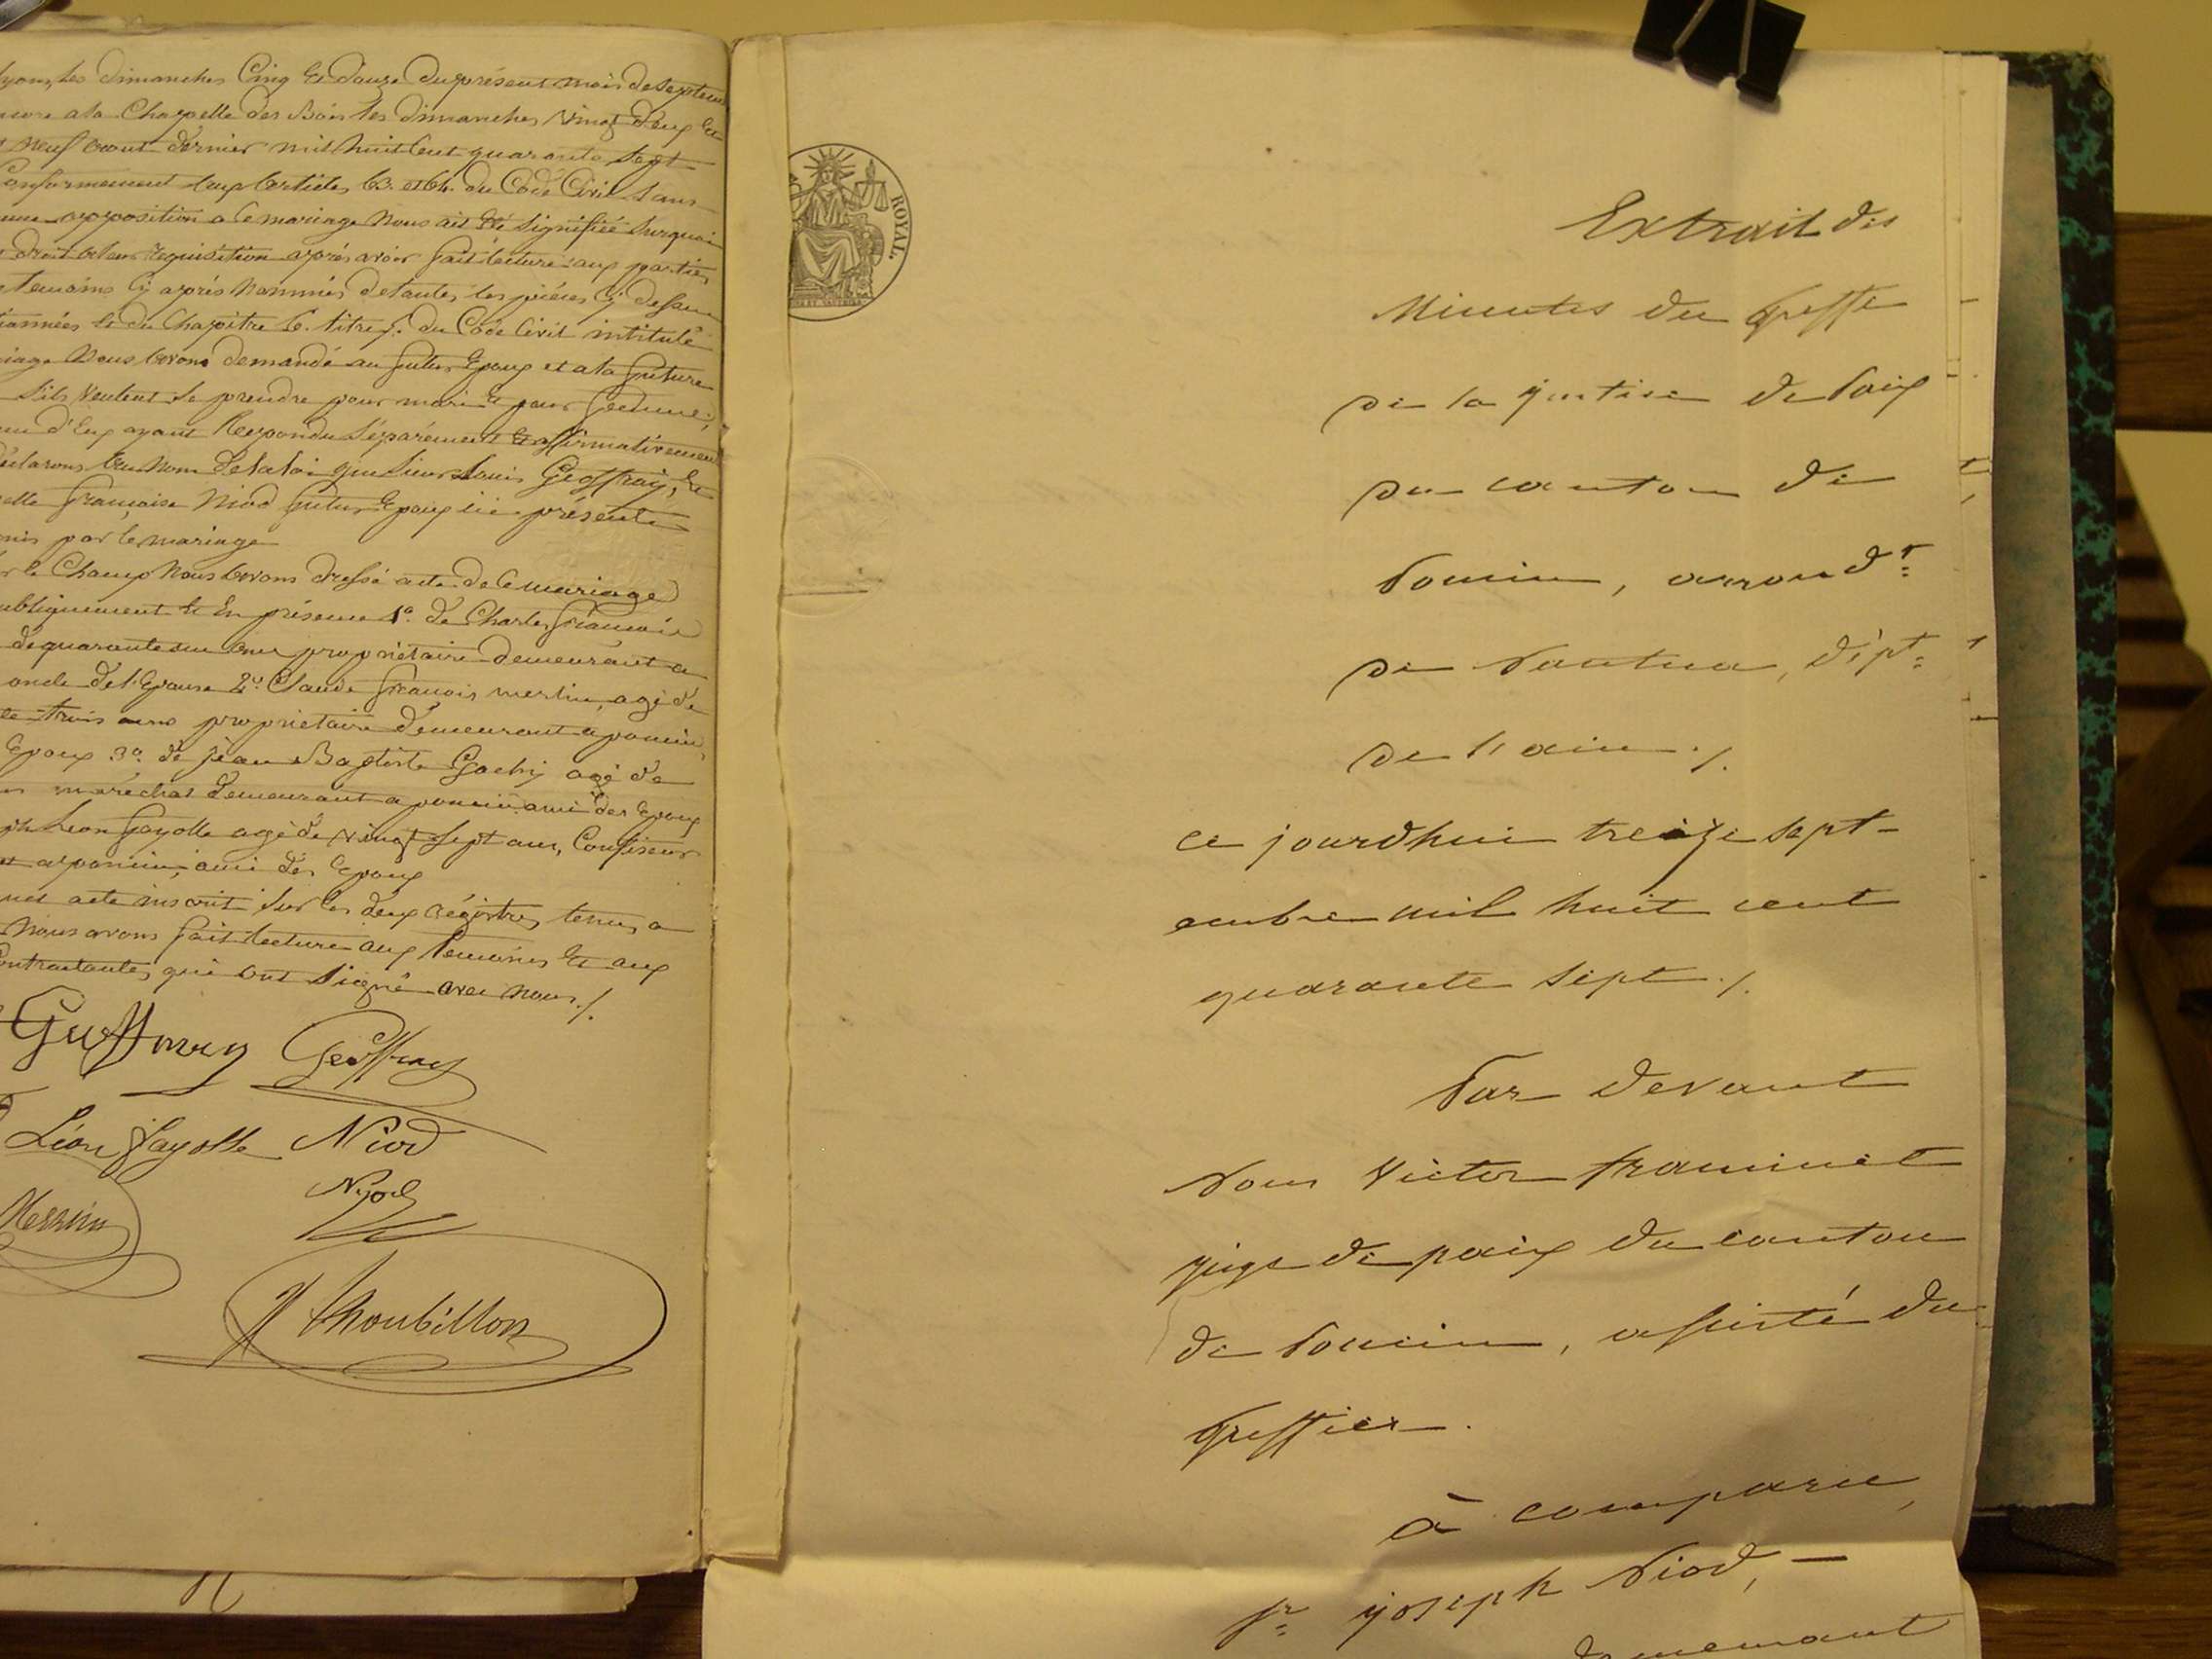 lyon, les dimanches Cinq Et douze du présent mois de septem
ncore a la Chapelle des Bois les dimanches vingt deux Et
neuf aout dernier mil huit Cent quarante sept
Conformement aux articles 63. et 64. du Code Civil sans
une opposition a Ce mariage Nous ait été signifiée surquoi
droit a leur requisition après avoir fait lecture aux parties
temoins Cy après Nommés de toutes les pièces Cy dessus
ionnées Et du Chapitre 6. titre 5. du Code Civil intitulé
iage Nous avons demandé au futur Epoux et a la future
s'ils veulent se prendre pour mari Et pour femme,
un d'Eux ayant Repondu séparement Et affirmativement
déclarons au Nom de la loi que sieur Louis Geoffray, Et
elle françoise Niod futurs Epoux ici présents
unis par le mariage
r le Champ Nous avons dressé acte de Ce mariage
ubliquement Et En présence 1o. de Charles françois
de quarante un ans propriétaire demeurant a
oncle de l'Epouse 2o Claude françois merlin, agé de
te trois ans propriétaire demeurant a poncin,
Epoux 3o. de jean Baptiste Gachy agé de
maréchal demeurant a poncin ami des Epoux
ph Leon fayolle agé de vingt sept ans, Confiseur
a poncin, ami des Epoux
quel acte inscrit sur les deux régistres tenus a
Nous avons fait lecture aux temoins Et aux
Contractantes qui ont signé avec nous ./.
Geoffray Geoffray
Léon Fayolle Niod
Niod
Merlin
Thoubillon
ROYAL.
Extrait des
Minutes du Greffe
de la justice de Paix
du canton de
Poncin, arrondt
de Nantua, dépt
de l'ain ./.
ce jourd'hui treize sept-
embre mil huit cent
quarante sept ./.
Par devant
Nous Victor franminet
juge de paix du canton
de Poncin, assisté du
Greffier.
à comparu,
Sr joseph Niod, —
demeurant